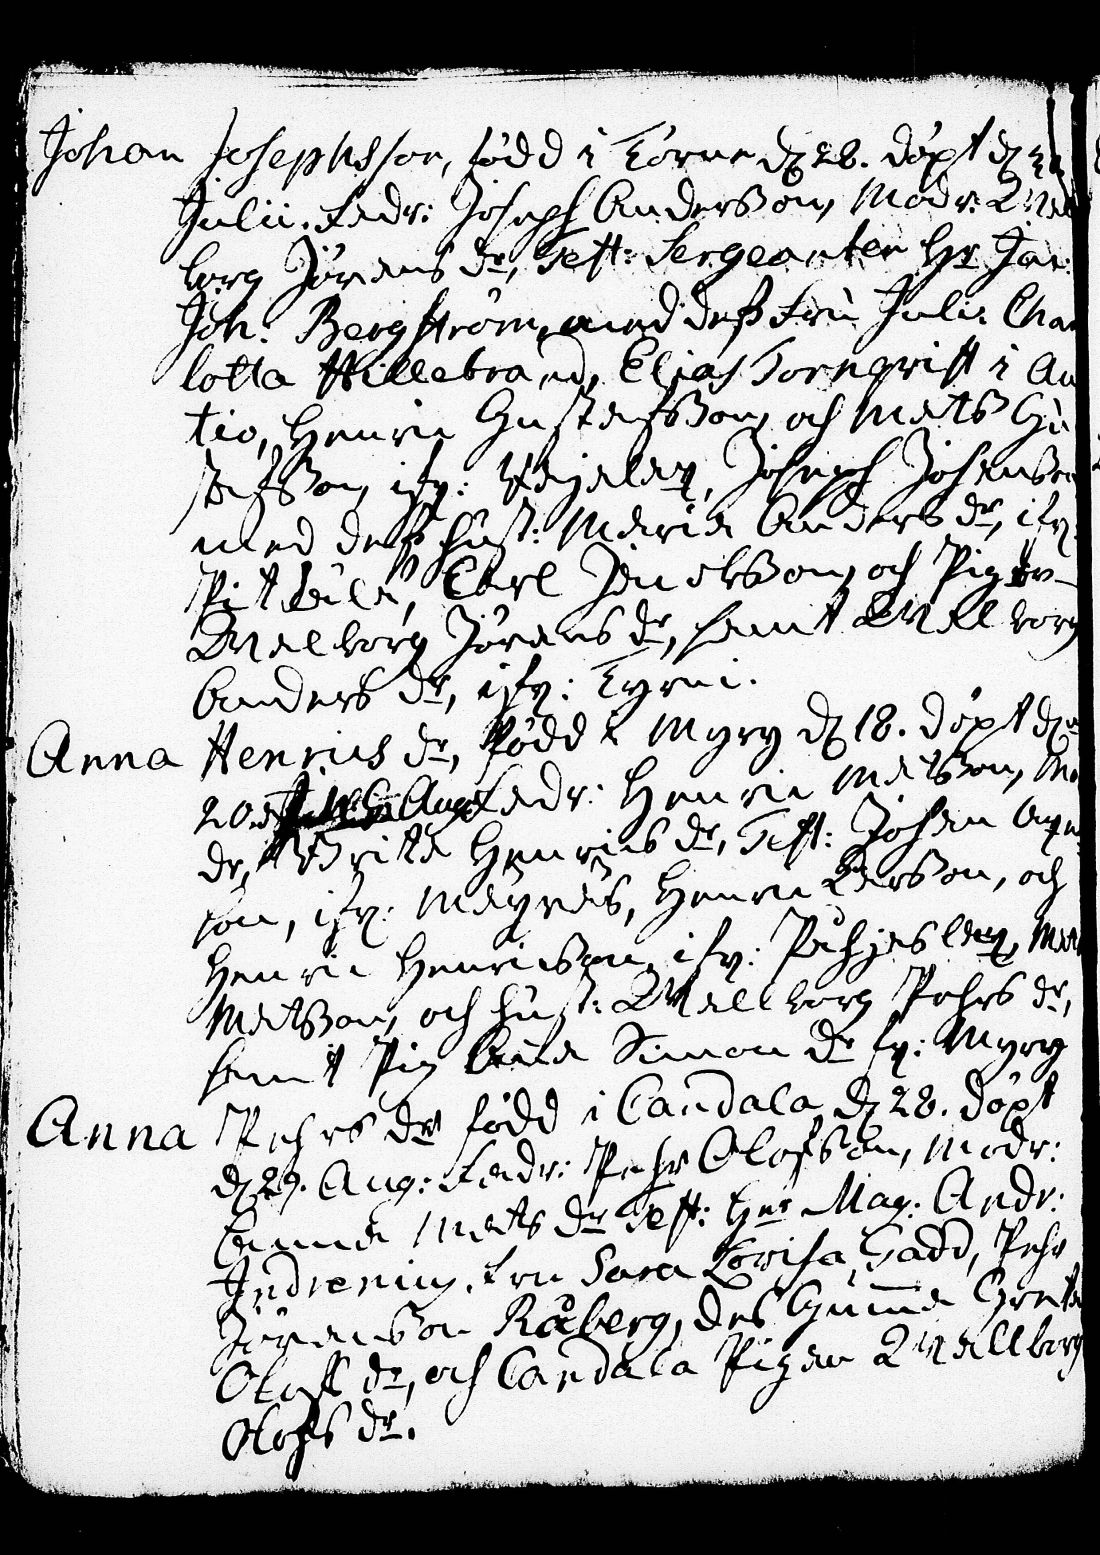 Johan Josephsson, född i Torne d 28. döpt d
Julii. Fadr: Joseph Andersson, Modr: Wal
borg Jörans dr, Test: Sergeanten Hr Jac:
Joh: Bergström, med dess Fru Juli: Char
lotta Hillebrand, Elias Tornqvist i Au
tio, Henric Gustafsson, och Mats Gu
stafsson, ifr: Joseph Johansson
med dess hust: Maria Anders dr, ifr:
Pittkule, Carl Jacobsson, och Pigor
Walborg Jörans dr, samt Walborg
Anders dr, ifr: Tyrni.
Anna Henrics dr, född i Myry d 18. döpt d
20 Aug Fadr: Henric Matsson, Mo
dr, Brita Henrics dr, Test: Johan
son, ifr: Henric Larsson, och
Henric Henricsson, ifr:
Matsson, och hust: Wallborg Pehrs dr,
samt Pig Anna Simons dr fr: Myry
Anna Pehrs dr född i Candala, d 28. döpt
d 29. Aug: Fadr: Pehr Olofsson, Modr:
Anna Mats dr Test: Hr Mag: Andr:
Indrenius. Fru Sara Lovisa Gadd, Pehr
Jöransson Råberg, des Gumma Greta
Olofs dr, och Candala Pigan Wallborg
Olofs dr.